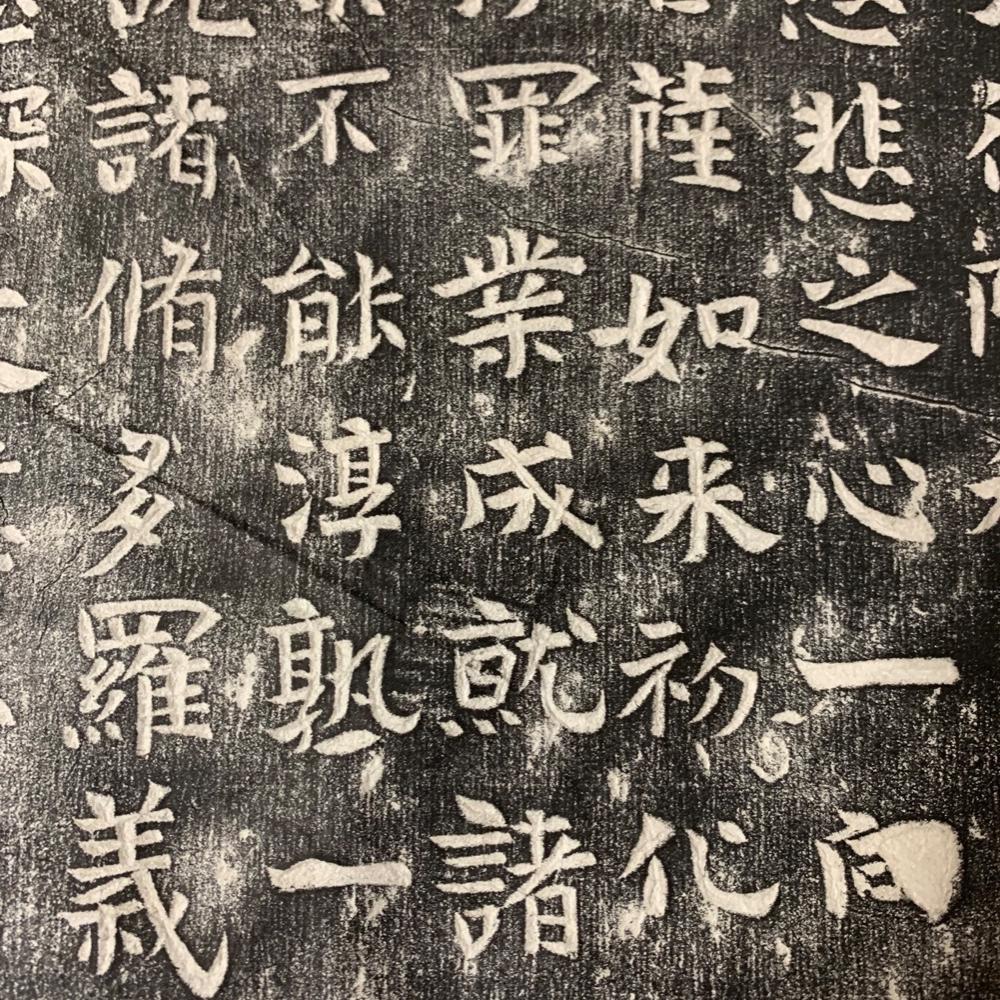 悲之心一向
薩如来初化
罪業成就諸
不能淳熟一
諸脩多羅義